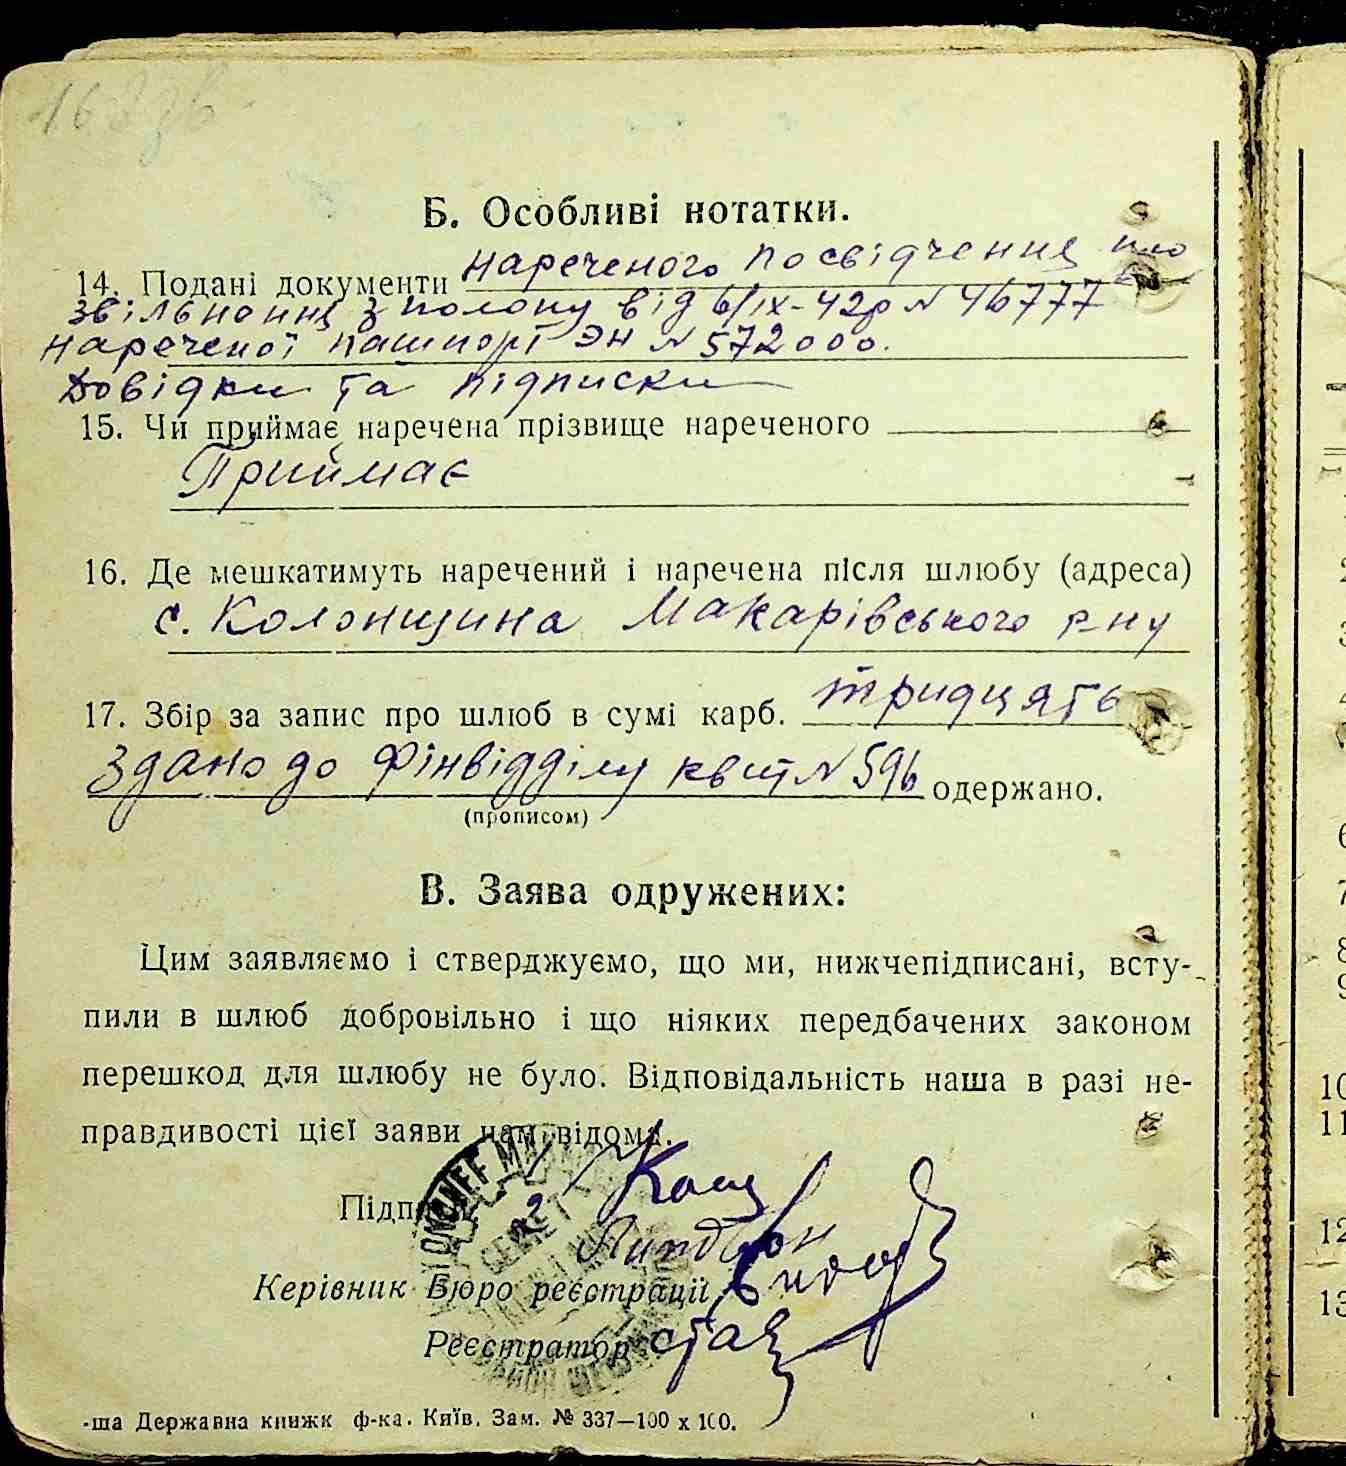 Б. Особливі нотатки.
14. Подані документи нареченого посвідчення про
звільнення з полону від 6/ІХ-42р № 46777
нареченої пашпорт ЭН № 572000.
Довідки та підписки
15. Чи приймає наречена прізвище нареченого
Приймає
16. Де мешкатимуть наречений і наречена після шлюбу (адреса)
с. Колонщина Макарівського р-ну
17. Збір за запис про шлюб в сумі карб. тридцять
Здано до Фінвідділу квит № 596 одержано.
(прописом)
В. Заява одружених:
Цим заявляємо і стверджуємо, що ми, нижчепідписані, всту-
пили в шлюб добровільно і що ніяких передбачених законом
перешкод для шлюбу не було. Відповідальність наша в разі не-
правдивості цієї заяви нам відома.
Підписи
Керівник Бюро реєстрації
Реєстратор
-ша Державна книжк ф-ка. Київ. Зам. № 337—100 х 100.
2
3
6
7
8
9
10
11
12
13